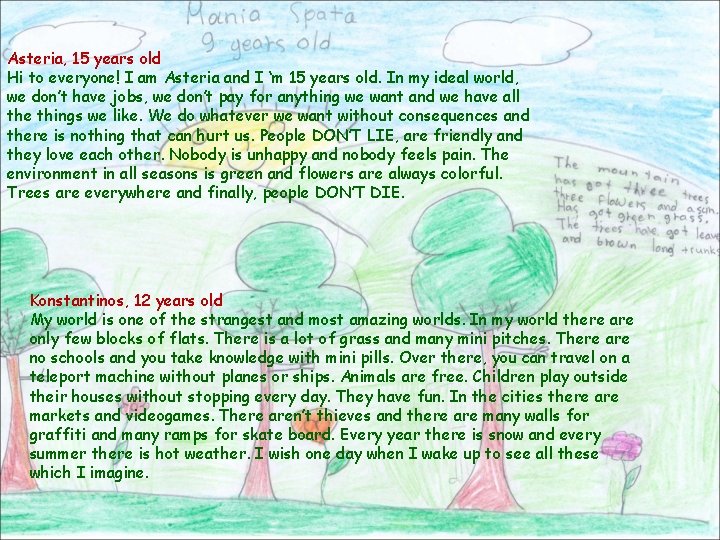 Mania Spata
9 years old
Asteria, 15 years old
Hi to everyone! I am Asteria and I ‘m 15 years old. In my ideal world,
we don’t have jobs, we don’t pay for anything we want and we have all
the things we like. We do whatever we want without consequences and
there is nothing that can hurt us. People DON’T LIE, are friendly and
they love each other. Nobody is unhappy and nobody feels pain. The
environment in all seasons is green and flowers are always colorful.
Trees are everywhere and finally, people DON’T DIE.
The mountain
has got three trees
three flowers and a sun.
Has got green grass.
The trees have got leave
and brown long trunks
Konstantinos, 12 years old
My world is one of the strangest and most amazing worlds. In my world there are
only few blocks of flats. There is a lot of grass and many mini pitches. There are
no schools and you take knowledge with mini pills. Over there, you can travel on a
teleport machine without planes or ships. Animals are free. Children play outside
their houses without stopping every day. They have fun. In the cities there are
markets and videogames. There aren’t thieves and there are many walls for
graffiti and many ramps for skate board. Every year there is snow and every
summer there is hot weather. I wish one day when I wake up to see all these
which I imagine.